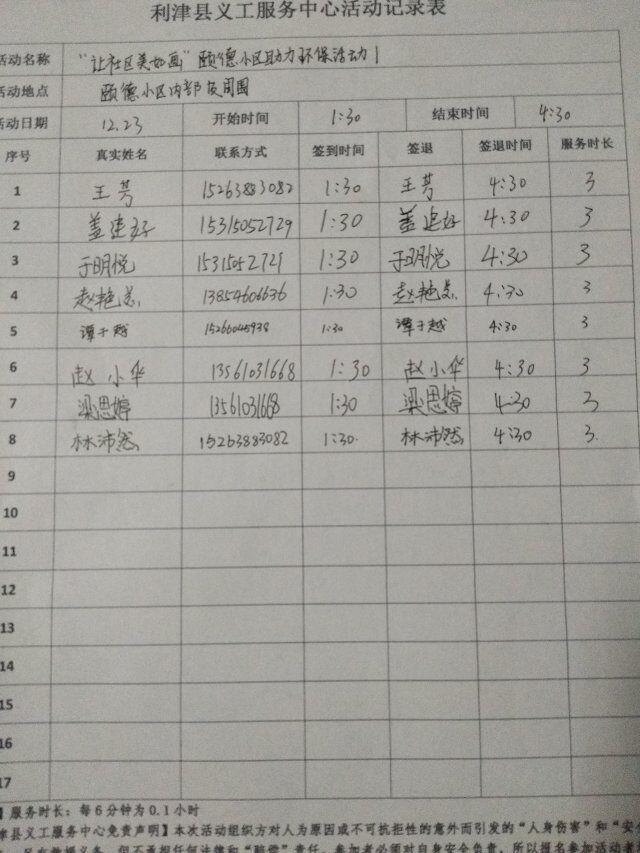 利津县义工服务中心活动记录表
活动名称 “让社区美如画”颐德小区助力环保活动1
活动地点 颐德小区内部及周围
活动日期 12.23 开始时间 1:30 结束时间 4:30
序号 真实姓名 联系方式 签到时间 签退 签退时间 服务时长
1 王芳 15263883082 1:30 王芳 4:30 3
2 盖建好 15315052729 1:30 盖建好 4:30 3
3 于明悦 15315052729 1:30 于明悦 4:30 3
4 赵艳 13854606636 1:30 赵艳 4:30 3
5 谭于越 15266045938 1:30 谭于越 4:30 3
6 赵小华 13561031668 1:30 赵小华 4:30 3
7 梁思婷 13561031668 1:30 梁思婷 4:30 3
8 林沛然 15263883082 1:30. 林沛然 4:30 3.
9
10
11
12
13
14
15
16
17
】服务时长：每6分钟为0.1小时
津县义工服务中心免责声明】本次活动组织方对人为原因或不可抗拒性的意外而引发的“人身伤害”和“安
但不承担任何法律和“赔偿”责任。参加者必须对自身安全负责，所以报名参加活动者